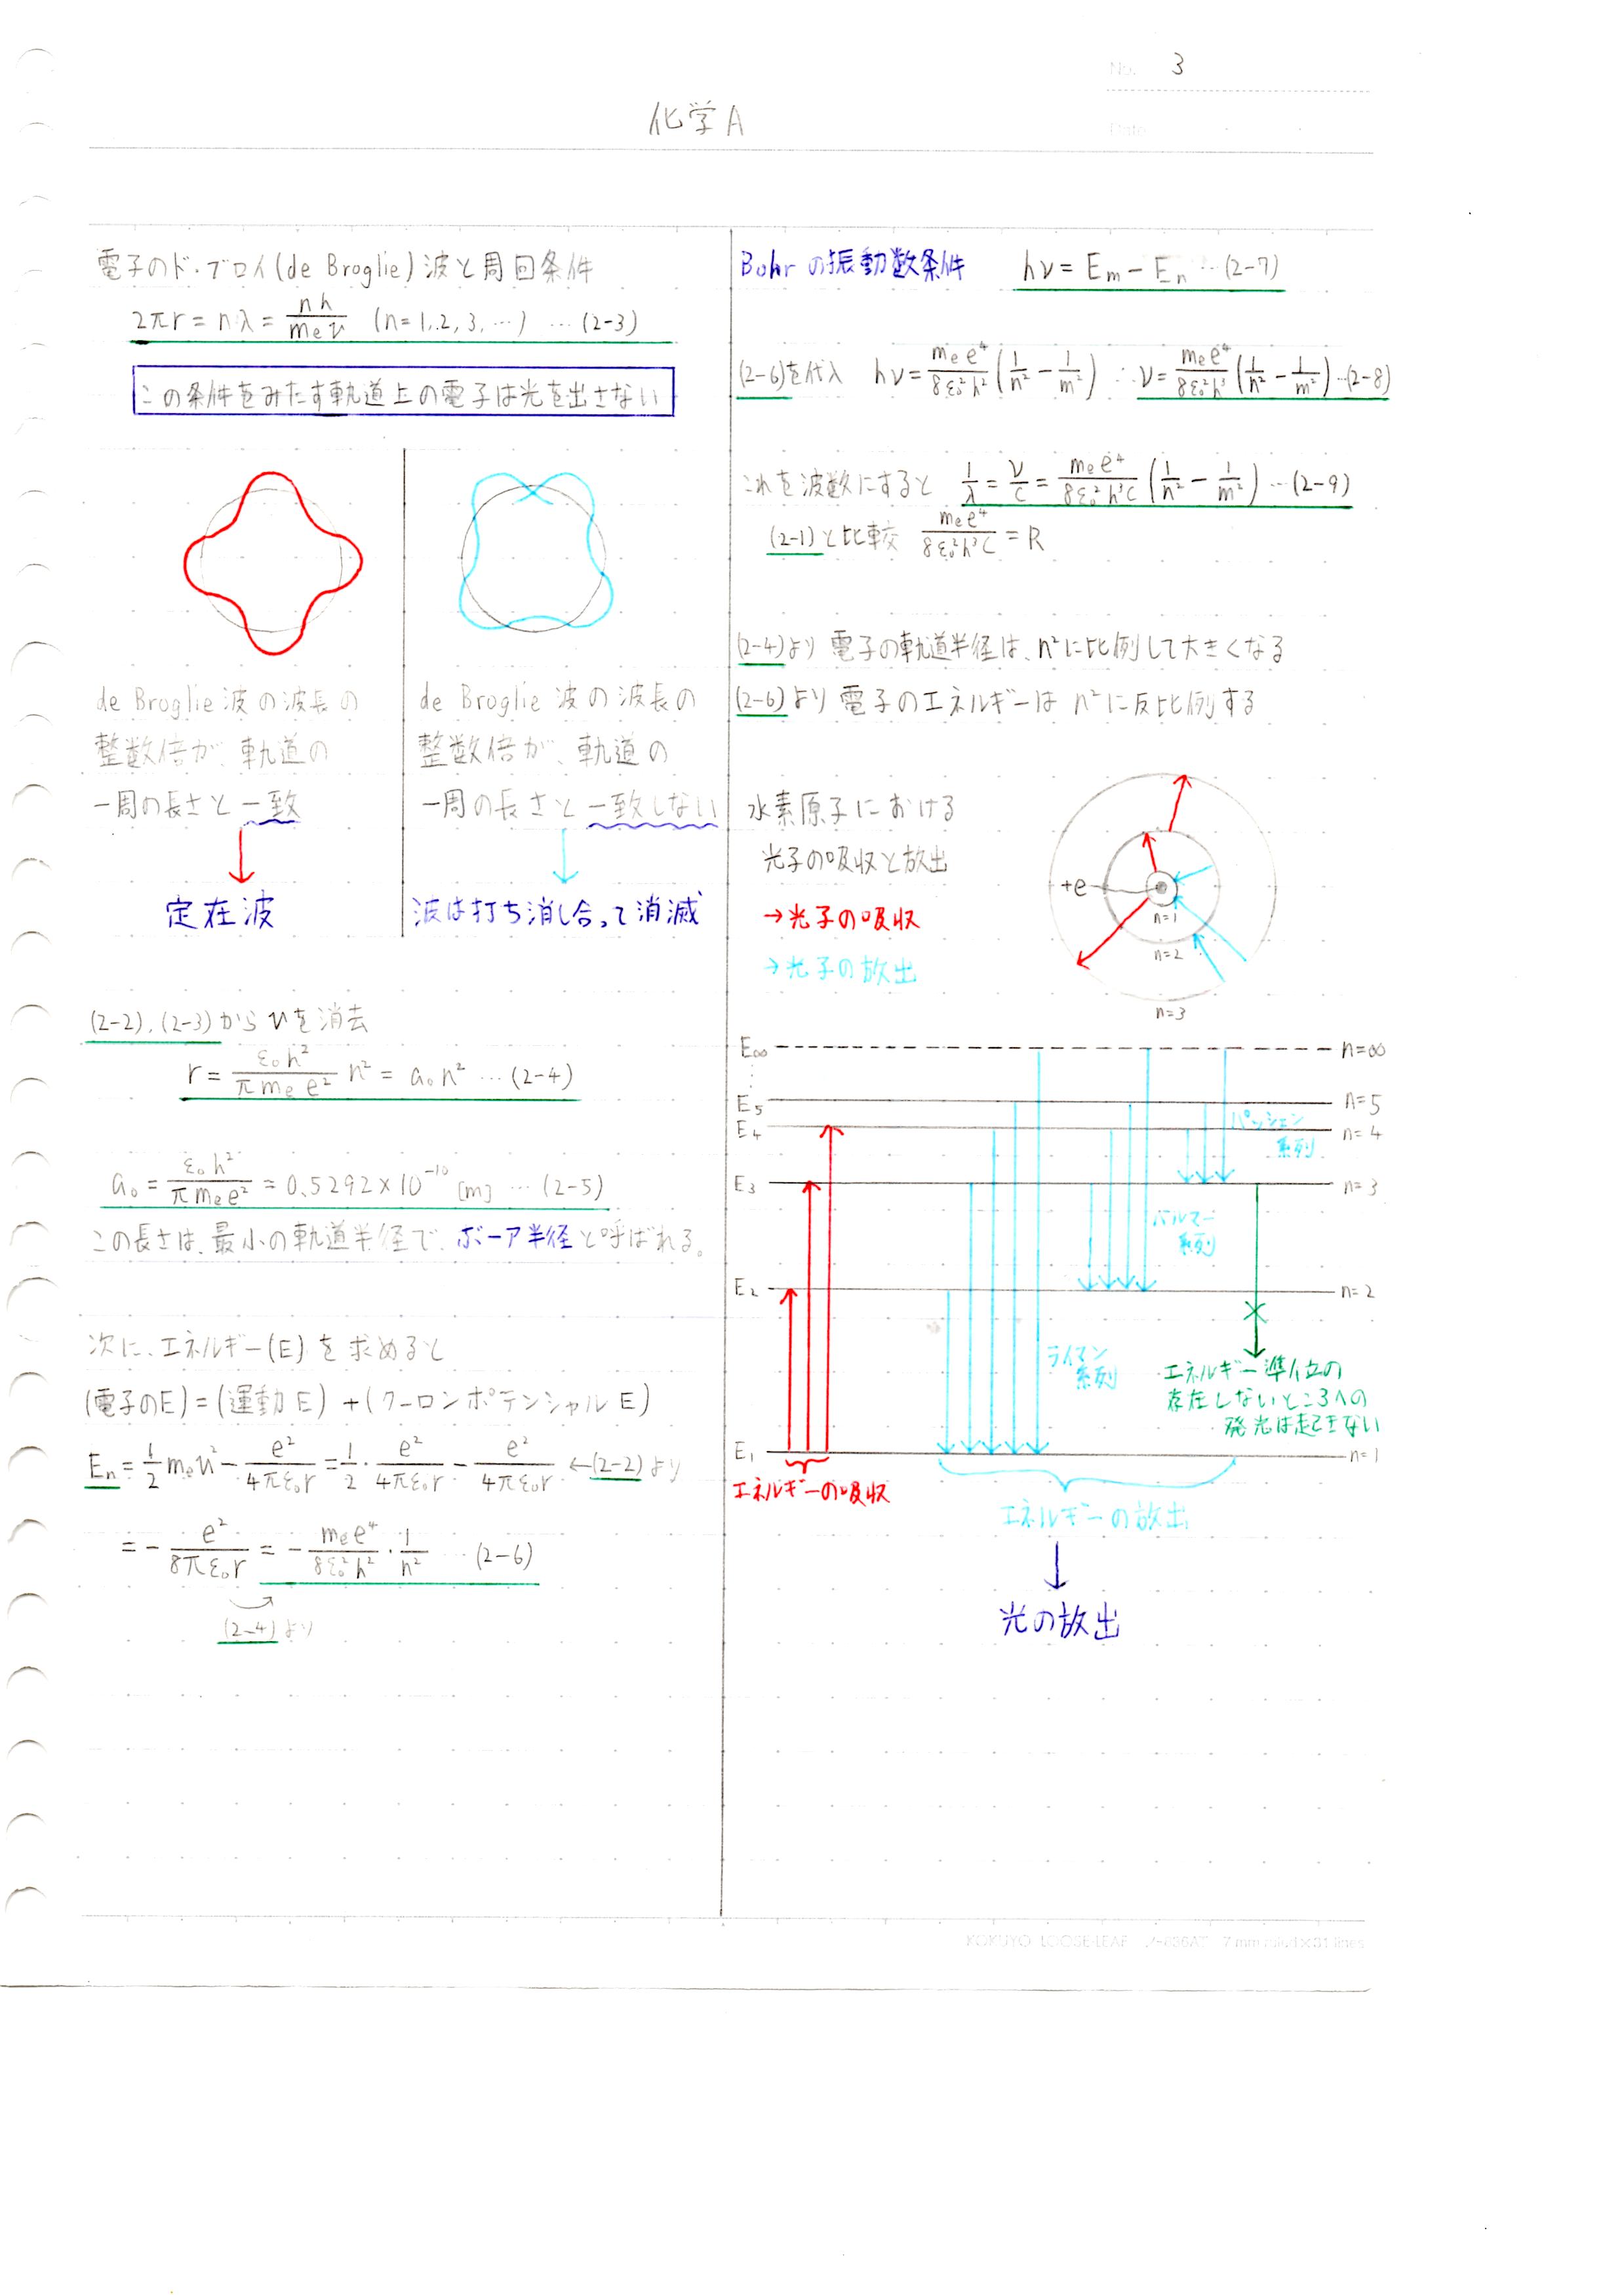 No. 3
化学A
Date
電子のド・ブロイ(de Broglie)波と周回条件
2πr = nλ = nh/(mₑv) (n=1, 2, 3, …) … (2-3)
この条件をみたす軌道上の電子は光を出さない
de Broglie波の波長の
整数倍が、軌道の
一周の長さと一致
定在波
de Broglie波の波長の
整数倍が、軌道の
一周の長さと一致しない
波は打ち消し合って消滅
(2-2), (2-3)からvを消去
r = ε₀h²/(πmₑe²) n² = a₀n² … (2-4)
a₀ = ε₀h²/(πmₑe²) = 0.5292×10⁻¹⁰ [m] … (2-5)
この長さは、最小の軌道半径で、ボーア半径と呼ばれる。
次に、エネルギー(E)を求めると
(電子のE)=(運動E)+(クーロンポテンシャルE)
Eₙ = 1/2 mₑv² − e²/(4πε₀r) = 1/2・e²/(4πε₀r) − e²/(4πε₀r) ←(2-2)より
= − e²/(8πε₀r) = − mₑe⁴/(8ε₀²h²)・1/n² … (2-6)
(2-4)より
Bohrの振動数条件 hν = Eₘ − Eₙ … (2-7)
(2-6)を代入 hν = mₑe⁴/(8ε₀²h²) (1/n² − 1/m²) ∴ν = mₑe⁴/(8ε₀²h³) (1/n² − 1/m²) … (2-8)
これを波数にすると 1/λ = ν/c = mₑe⁴/(8ε₀²h³c) (1/n² − 1/m²) … (2-9)
(2-1)と比較 mₑe⁴/(8ε₀²h³c) = R
(2-4)より 電子の軌道半径は、n²に比例して大きくなる
(2-6)より 電子のエネルギーは n²に反比例する
水素原子における
光子の吸収と放出
→光子の吸収
→光子の放出
+e
n=1
n=2
n=3
E∞ n=∞
E₅ n=5
E₄ n=4
パッシェン
系列
E₃ n=3
バルマー
系列
E₂ n=2
ライマン
系列
エネルギー準位の
存在しないところへの
発光は起きない
E₁ n=1
エネルギーの吸収
エネルギーの放出
光の放出
KOKUYO LOOSE-LEAF ノ-836AT 7 mm ruled×31 lines